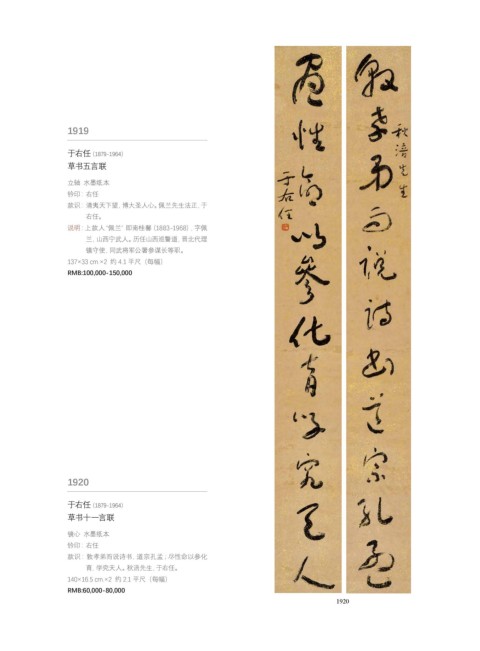 1919
于右任 (1879-1964)
草书五言联
立轴 水墨纸本
钤印：右任
款识：清夷天下望，博大圣人心。佩兰先生法正，于
右任。
说明：上款人“佩兰”即南桂馨（1883-1968），字佩
兰，山西宁武人。历任山西巡警道、晋北代理
镇守使、同武将军公署参谋长等职。
137×33 cm.×2 约 4.1 平尺（每幅）
RMB:100,000-150,000
1920
于右任 (1879-1964)
草书十一言联
镜心 水墨纸本
钤印：右任
款识：敦孝弟而说诗书，道宗孔孟；尽性命以参化
育，学究天人。秋涪先生，于右任。
140×16.5 cm.×2 约 2.1 平尺（每幅）
RMB:60,000-80,000
敦孝弟而说诗书道宗孔孟
秋涪先生
尽性命以参化育学究天人
于右任
1920